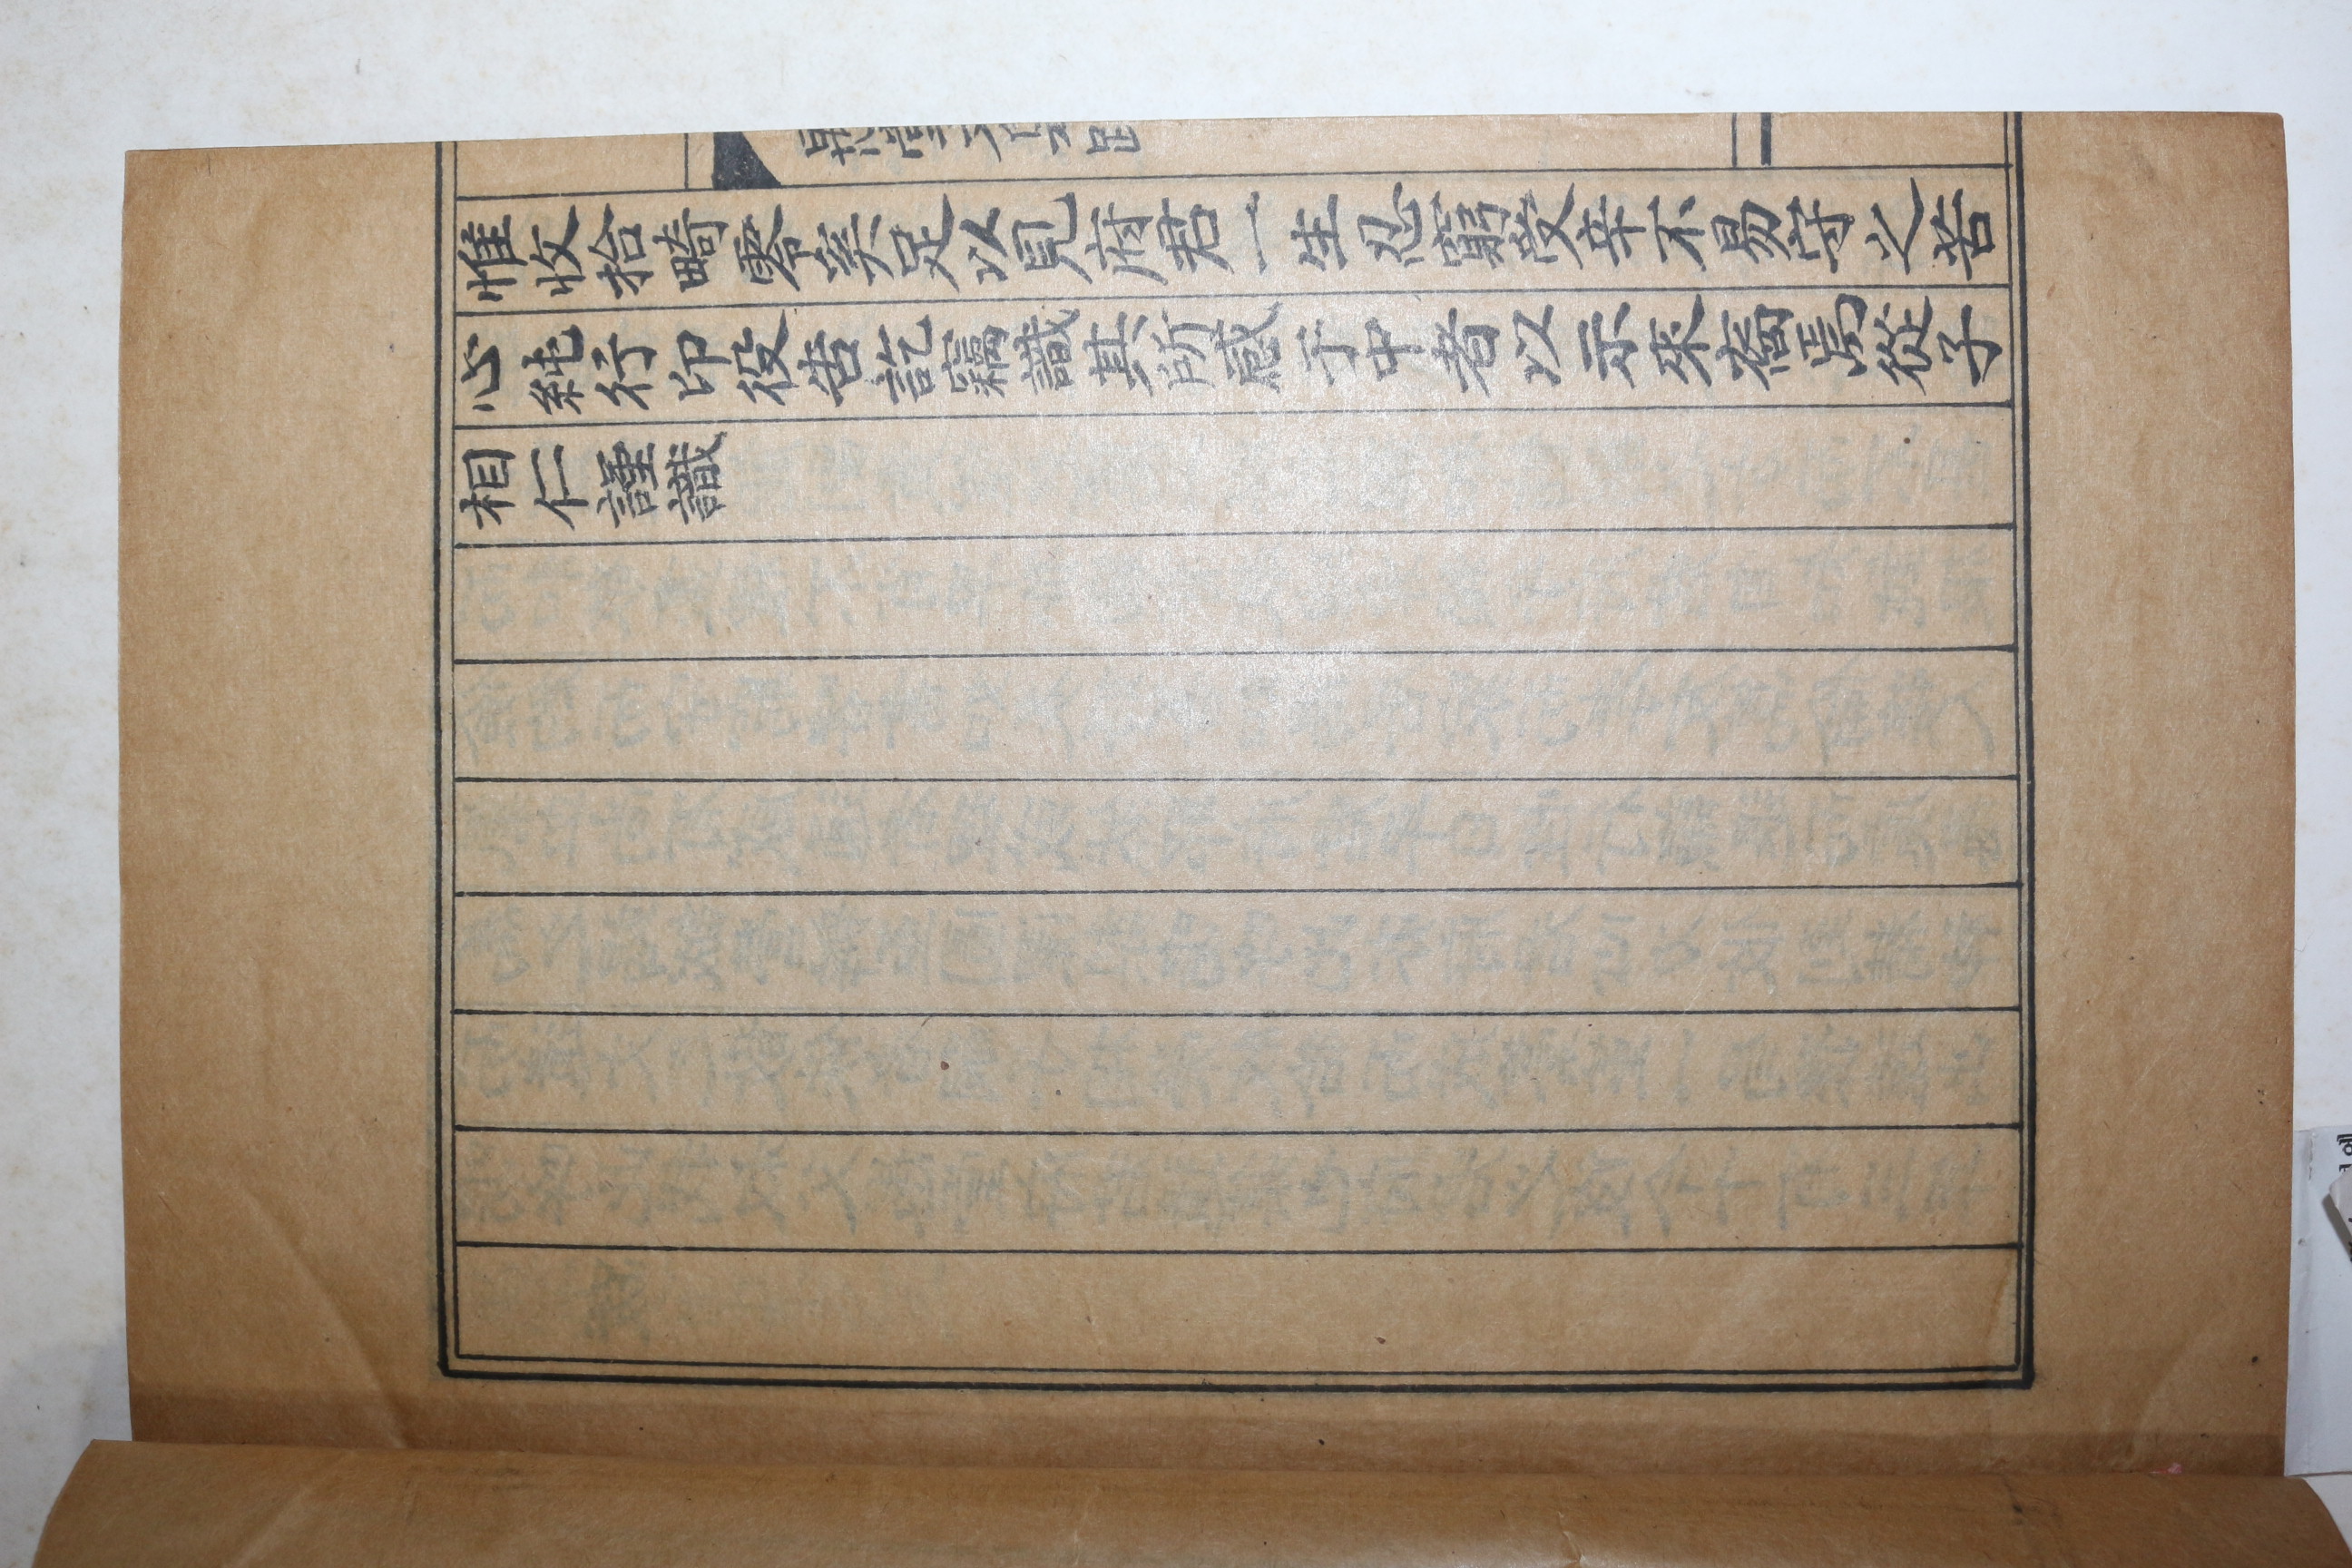 惟收拾畸零亦足以見府君一生忍窮咬辛不易守之苦
心純行印役告訖竊識其所感于中者以示來裔焉從子
相仁謹識